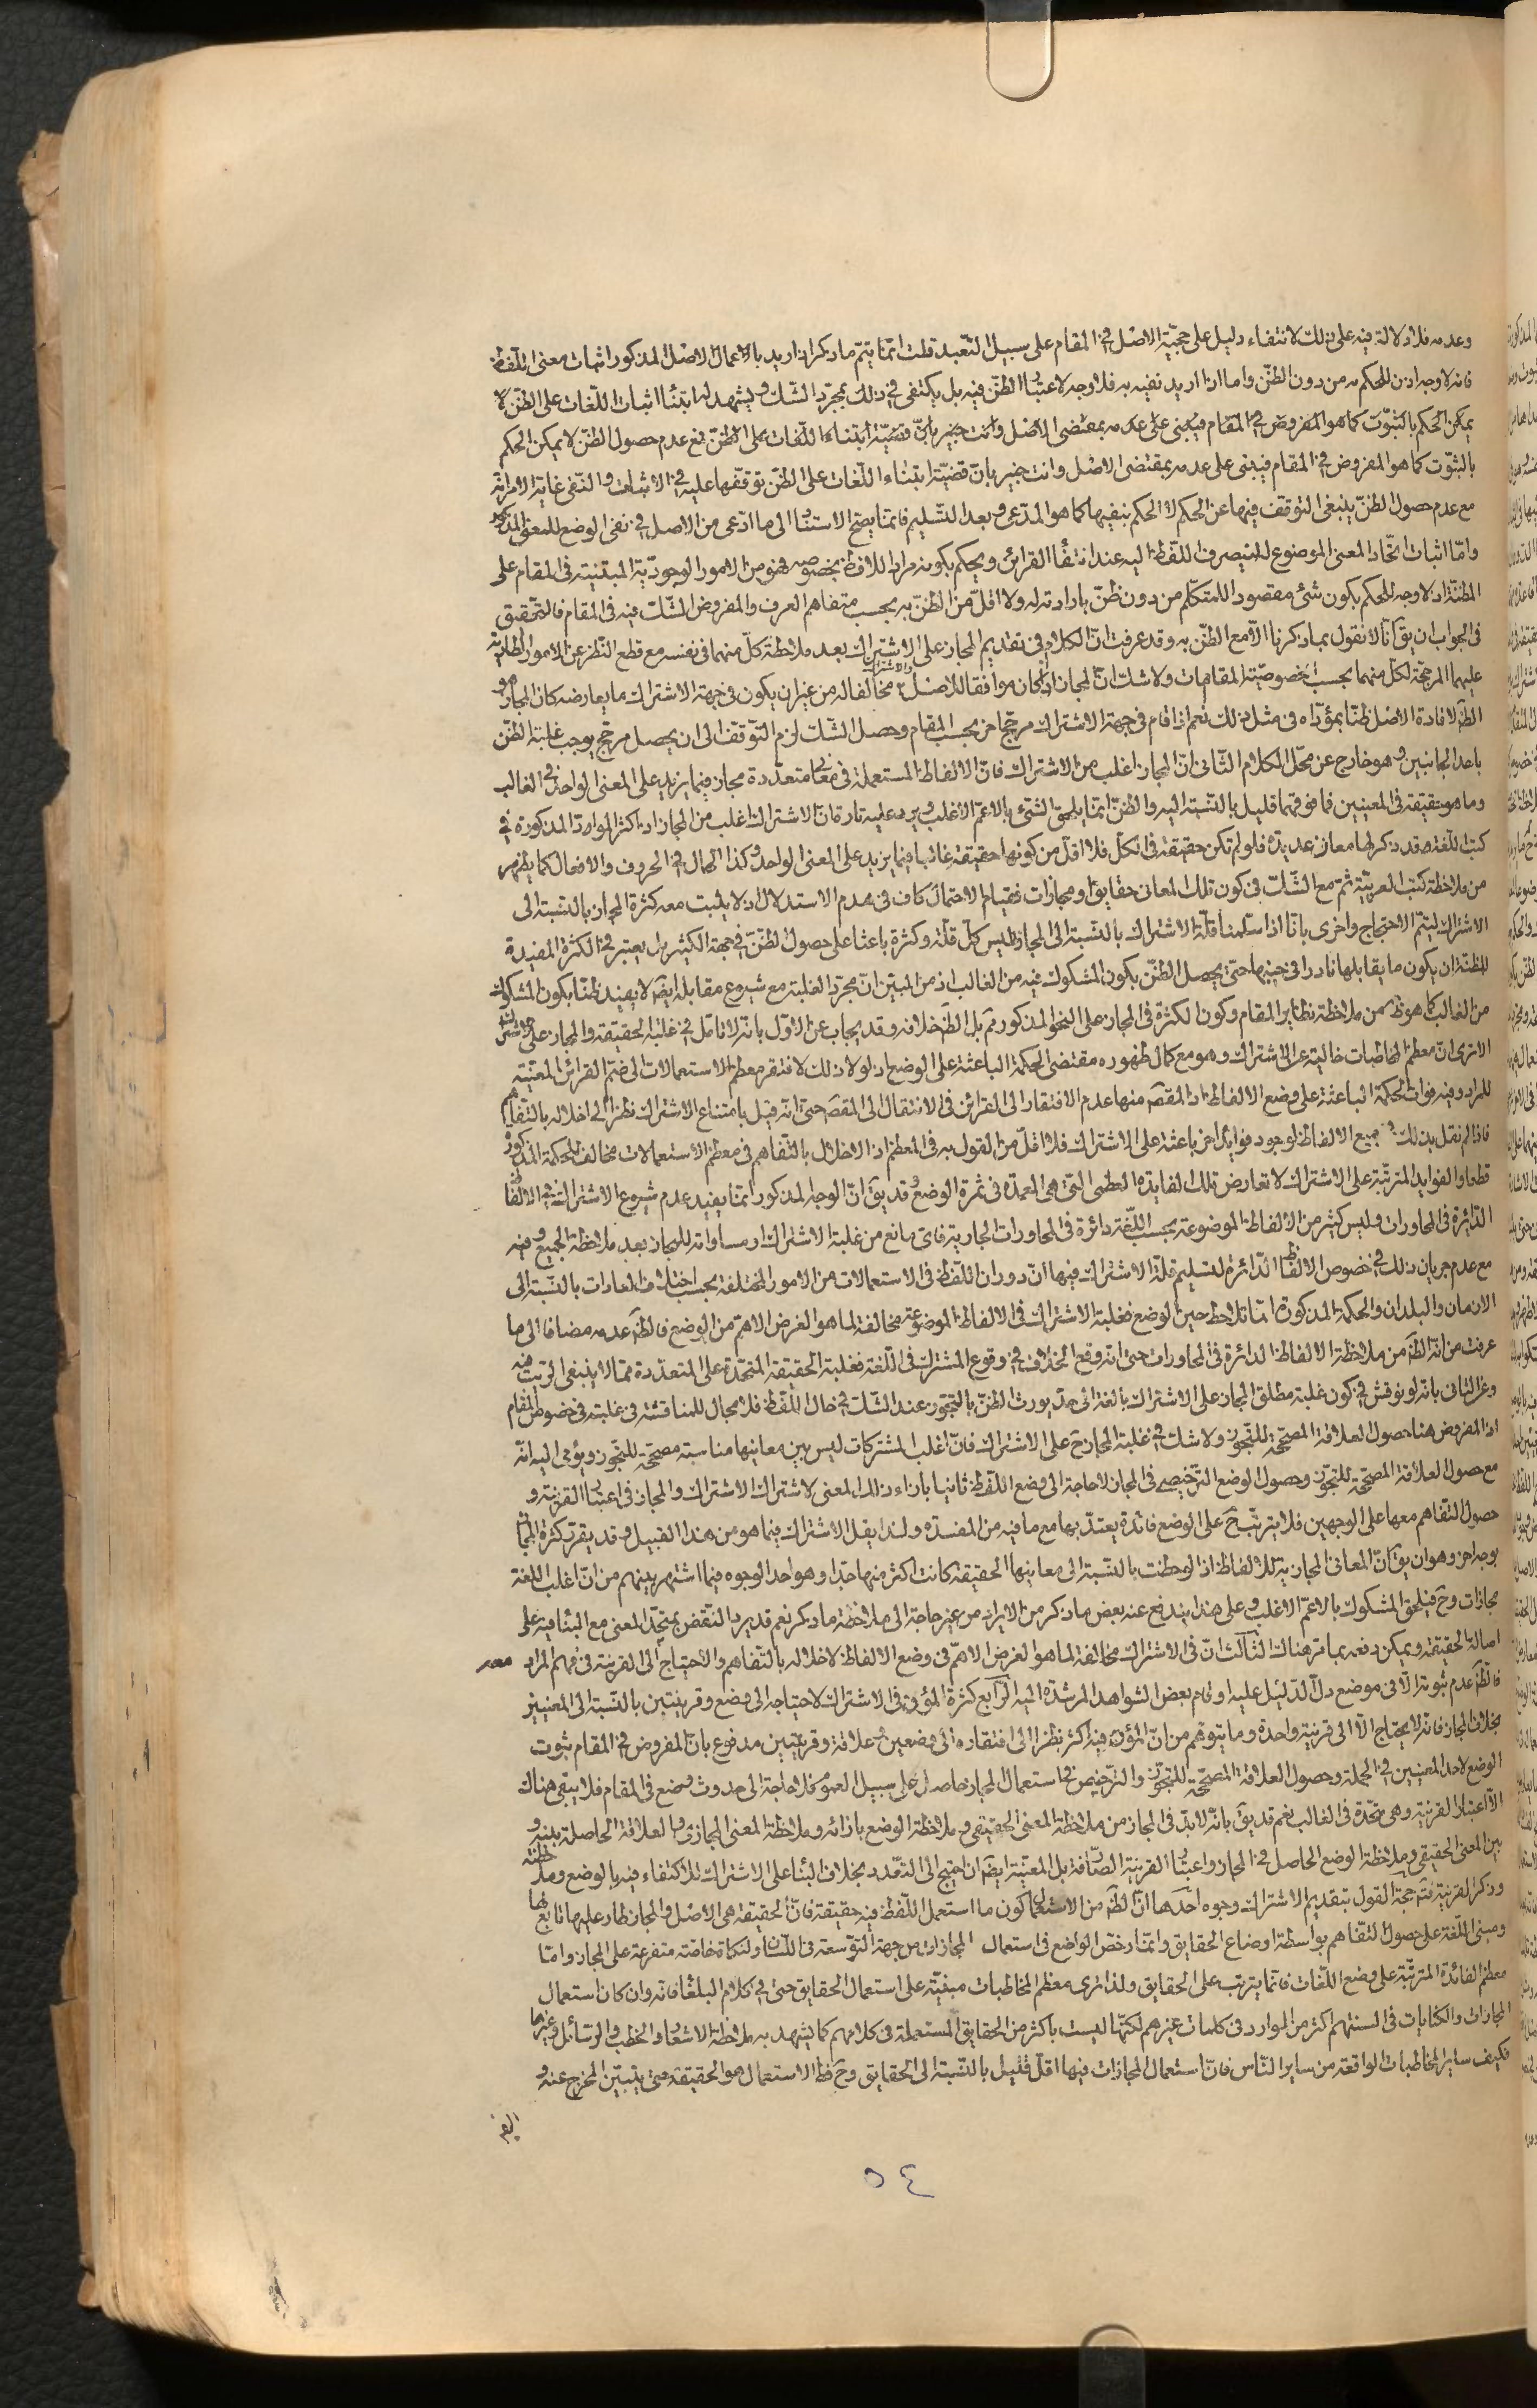 وعدمه فلا دلالة فيه على ذلك لانتفاء دليل على حجيّة الاصل في المقام على سبيل التعبد قلت انما يتم ما ذكر اذا اريد باعمال الاصل المذكور اثبات معنى اللفظ
فانه لا وجه اذن للحكم به من دون الظنّ واما اذا اريد نفيه به فلا وجه لاعتبار الظنّ فيه بل يكتفى في ذلك بمجرّد الشك ويشهد له ابتناء اثبات اللّغات على الظنّ لا
يمكن الحكم بالثبوت كما هو المفروض في المقام فيبنى على عدمه بمقتضى الاصل وانت خبير بانّ قضيّة ابتناء اللّغات على الظنّ مع عدم حصول الظنّ لا يمكن الحكم
بالثبوت كما هو المفروض في المقام فيبنى على عدمه بمقتضى الاصل وانت خبير بانّ قضيّة ابتناء اللّغات على الظنّ توقّفها عليه في الاثبات والنّفى غاية الامر انّه
مع عدم حصول الظنّ ينبغى التوقف فيها عن الحكم لا الحكم بنفيها كما هو المدّعى وبعد التسليم فانما يصحّ الاستناد الى ما ادّعى من الاصل في نفى الوضع للمعنى المذكور
وامّا اثبات اتّحاد المعنى الموضوع له لينصرف اللّفظ اليه عند انتفاء القرائن ويحكم بكونه مراد اللافظ بخصوصه فهو من الامور الوجوديّة المبتنية في المقام على
المظنّة اذ لا وجه للحكم بكون شئ مقصودا للمتكلّم من دون ظنّ بارادته له ولا اقلّ من الظنّ به بحسب متفاهم العرف والمفروض الشّك فيه في المقام فالتحقيق
في الجواب ان يق انّا لا نقول بما ذكرنا الا مع الظنّ به وقد عرفت انّ الكلام في تقديم المجاز على الاشتراك بعد ملاحظة كلّ منهما في نفسه مع قطع النّظر عن الامور الطارية
عليهما المرجّحة لكلّ منهما بحسب خصوصيّة المقامات ولا شك انّ المجاز اذا كان موافقا للاصل والاشتراك مخالفا له من غير ان يكون في جهة الاشتراك ما يعارضه كان المجاز هو
الظّ لافادة الاصل ظنّا بمؤدّاه في مثل ذلك نعم اذا قام في جهة الاشتراك مرجّح اخر بحسب المقام وحصل الشّك لزم التّوقف الى ان يحصل مرجّح يوجب غلبة الظنّ
باحد الجانبين وهو خارج عن محلّ الكلام الثّانى انّ المجاز اغلب من الاشتراك فانّ الالفاظ المستعملة في معانى متعدّدة مجاز فيما يزيد على المعنى الواحد في الغالب
وما هو حقيقة في المعنيين فما فوقهما قليل بالنّسبة اليه والظنّ انّما يلحق الشئ بالاعمّ الاغلب ويرد عليه تارة انّ الاشتراك اغلب من المجاز اذ اكثر المواد المذكورة في
كتب اللّغة قد ذكر لها معان عديدة فلو لم تكن حقيقة في الكلّ فلا اقلّ من كونها حقيقة غالبا فيما يزيد على المعنى الواحد وكذا الحال في الحروف والافعال كما يظهر
من ملاحظة كتب العربيّة ثم مع الشّك في كون تلك المعانى حقايق او مجازات فقيام الاحتمال كاف في هدم الاستدلال اذ لا يثبت معه كثرة المجاز بالنسبة الى
الاشتراك ليتمّ الاحتجاج واخرى بانّا اذا سلّمنا قلّة الاشتراك بالنّسبة الى المجاز فليس كلّ قلّة وكثرة باعثا على حصول الظنّ في جهة الكثير بل يعتبر في الكثرة المفيدة
للظنّ ان يكون ما يقابلها نادرا في جنبها حتى يحصل الظنّ بكون المشكوك فيه من الغالب اذ من المبيّن انّ مجرّد الغلبة مع شيوع مقابله ايضا لا يفيد ظنّا بكون المشكوك
من الغالب كما هو ظ ممن ملاحظة نظاير المقام وكون الكثرة في المجاز على النحو المذكور ثم بل الظ خلافه وقد يجاب عن الاوّل بانّه لا تامّل في غلبة الحقيقة والمجاز على الاشتراك
الا ترى انّ معظم المخاطبات خالية عن الاشتراك وهو مع كمال ظهوره مقتضى الحكمة الباعثة على الوضع اذ لولا ذلك لافتقر معظم الاستعمالات الى ضمّ القرائن المعيّنة
للمراد وفيه فوات الحكمة الباعثة على وضع الالفاظ اذ المقصّ منها عدم الافتقار الى القرائن في الانتقال الى المقصّ حتى انّه قيل بامتناع الاشتراك نظرا الى اخلاله بالتّفاهم
فاذا لم نقل بذلك في جميع الالفاظ لوجود فوايد اخر باعثة على الاشتراك فلا اقلّ من القول به في المعظم اذ الاخلال بالتّفاهم في معظم الاستعمالات مخالف للحكمة المذكورة
قطعا والفوايد المترتّبة على الاشتراك لا تعارض تلك الفايدة العظمى التّى هي العمدة في ثمرة الوضع وقد يق انّ الوجه المذكور انّما يفيد عدم شيوع الاشتراك في الالفاظ
الدّائرة في المحاورات وليس كثير من الالفاظ الموضوعة بحسب اللّغة دائرة في المحاورات الجارية فاى مانع من غلبة الاشتراك او مساواته للمجاز بعد ملاحظة الجميع وفيه
مع عدم جريان ذلك في خصوص الالفاظ الدّائرة لتسليم قلّة الاشتراك فيها انّ دوران اللّفظ في الاستعمالات من الامور المختلفة بحسب اختلاف العادات بالنّسبة الى
الازمان والبلدان والحكمة المذكورة انّما تلاحظ حين الوضع فغلبة الاشتراك في الالفاظ الموضوعة مخالفة لما هو الغرض الاهمّ من الوضع فالظ عدمه مضافا الى ما
عرفت من انّه الظّ من ملاحظة الالفاظ الدائرة في المحاورات حتى انّه وقع الخلاف في وقوع المشترك في اللّغة فغلبة الحقيقة المتّحدة على المتعدّدة ممّا لا ينبغى الريب فيه
وعن الثانى بانّه لو نوقش في كون غلبة مطلق المجاز على الاشتراك بالغة الى حدّ يورث الظنّ بالتجوّز عند الشّك في حال اللّفظ فلا مجال للمناقشة في غلبته في خصوص المقام
اذ المفروض هنا حصول العلاقة المصحّحة للتجوّز ولا شك في غلبة المجاز ح على الاشتراك فانّ اغلب المشتركات ليس بين معانيها مناسبة مصحّحة للتجوّز ويؤمى اليه انّه
مع حصول العلاقة المصحّحة للتجوّز وحصول الوضع الترخيصى في المجاز لا حاجة الى وضع اللّفظ ثانيا بازاء ذلك المعنى لاشتراك الاشتراك والمجاز في اعتبار القرينة و
حصول التّفاهم معها على الوجهين فلا يترتّب ح على الوضع فائدة يعتدّ بها مع ما فيه من المفسدة ولذا يقلّ الاشتراك فيما هو من هذا القبيل وقد يقرّر كثرة المجاز
بوجه اخر وهو ان يق انّ المعانى المجازيّة للالفاظ اذا لوحظت بالنّسبة الى معانيها الحقيقة كانت اكثر منها جدّا وهو احد الوجوه فيما اشتهر بينهم من انّ اغلب اللغة
مجازات وح فيلحق المشكوك بالاعمّ الاغلب وعلى هذا يندفع عنه بعض ما ذكر من الايراد من غير حاجة الى ملاحظة ما ذكر نعم قد يرد النّقض بمتحد المعنى مع البناء فيه على
اصالة الحقيقة ويمكن دفعه بما مرّ هناك الثّالث انّ في الاشتراك مخالفة لما هو الغرض الاهمّ في وضع الالفاظ لاخلاله بالتفاهم والاحتياج الى القرينة في فهم المراد معه
فالظّ عدم ثبوته الّا في موضع دلّ الدّليل عليه او قام بعض الشواهد المرشدة اليه الرّابع كثرة المؤن في الاشتراك لاحتياجه الى وضع وقرينتين بالنّسبة الى المعنيين
بخلاف المجاز فانّه لا يحتاج الّا الى قرينة واحدة وما يتوهّم من انّ المؤن فيه اكثر نظرا الى افتقاره الى وضعين وعلاقة وقرينتين مدفوع بانّ المفروض في المقام ثبوت
الوضع لاحد المعنيين في الجملة وحصول العلاقة المصحّحة للتجوّز والتّرخيص في استعمال المجاز حاصل على سبيل العموم فلا حاجة الى حدوث وضع في المقام فلا يبقى هناك
الّا اعتبار القرينة وهى متّحدة في الغالب نعم قد يق بانّه لا بدّ في المجاز من ملاحظة المعنى الحقيقى وملاحظة الوضع بازائه وملاحظة المعنى المجازى والعلاقة الحاصلة بينه و
بين المعنى الحقيقى وملاحظة الوضع الحاصل في المجاز واعتبار القرينة الصّارفة بل المعيّنة ايضا ان احتيج الى التّعدد بخلاف البناء على الاشتراك للاكتفاء فيه بالوضع وملاحظته
وذكر القرينة حجة القول بتقديم الاشتراك وجوه احدها انّ الظّ من الاستعمال كون ما استعمل اللّفظ فيه حقيقة فانّ الحقيقة هى الاصل والمجاز طار عليها تابع لها
ومبنى اللّغة على حصول التّفاهم بواسطة اوضاع الحقايق وانّما رخّص الواضع في استعمال المجازات من جهة التّوسعة في اللسان ولنكات خاصّة متفرعة على المجاز وامّا
معظم الفائدة المترتّبة على وضع اللّغات فانّما يترتب على الحقايق ولذا ترى معظم المخاطبات مبنيّة على استعمال الحقايق حتى في كلام البلغاء فانّه وان كان استعمال
المجازات والكنايات في السنتهم اكثر من الموارد في كلمات غيرهم لكنّها ليست باكثر من الحقايق المستعملة في كلامهم كما يشهد به ملاحظة الاشعار والخطب والرّسائل وغيرها
فكيف ساير المخاطبات الواقعة من ساير النّاس فانّ استعمال المجازات فيها اقلّ قليل بالنّسبة الى الحقايق وح فظ الاستعمال هو الحقيقة حتى يتبيّن المخرج عنه و
٥٤